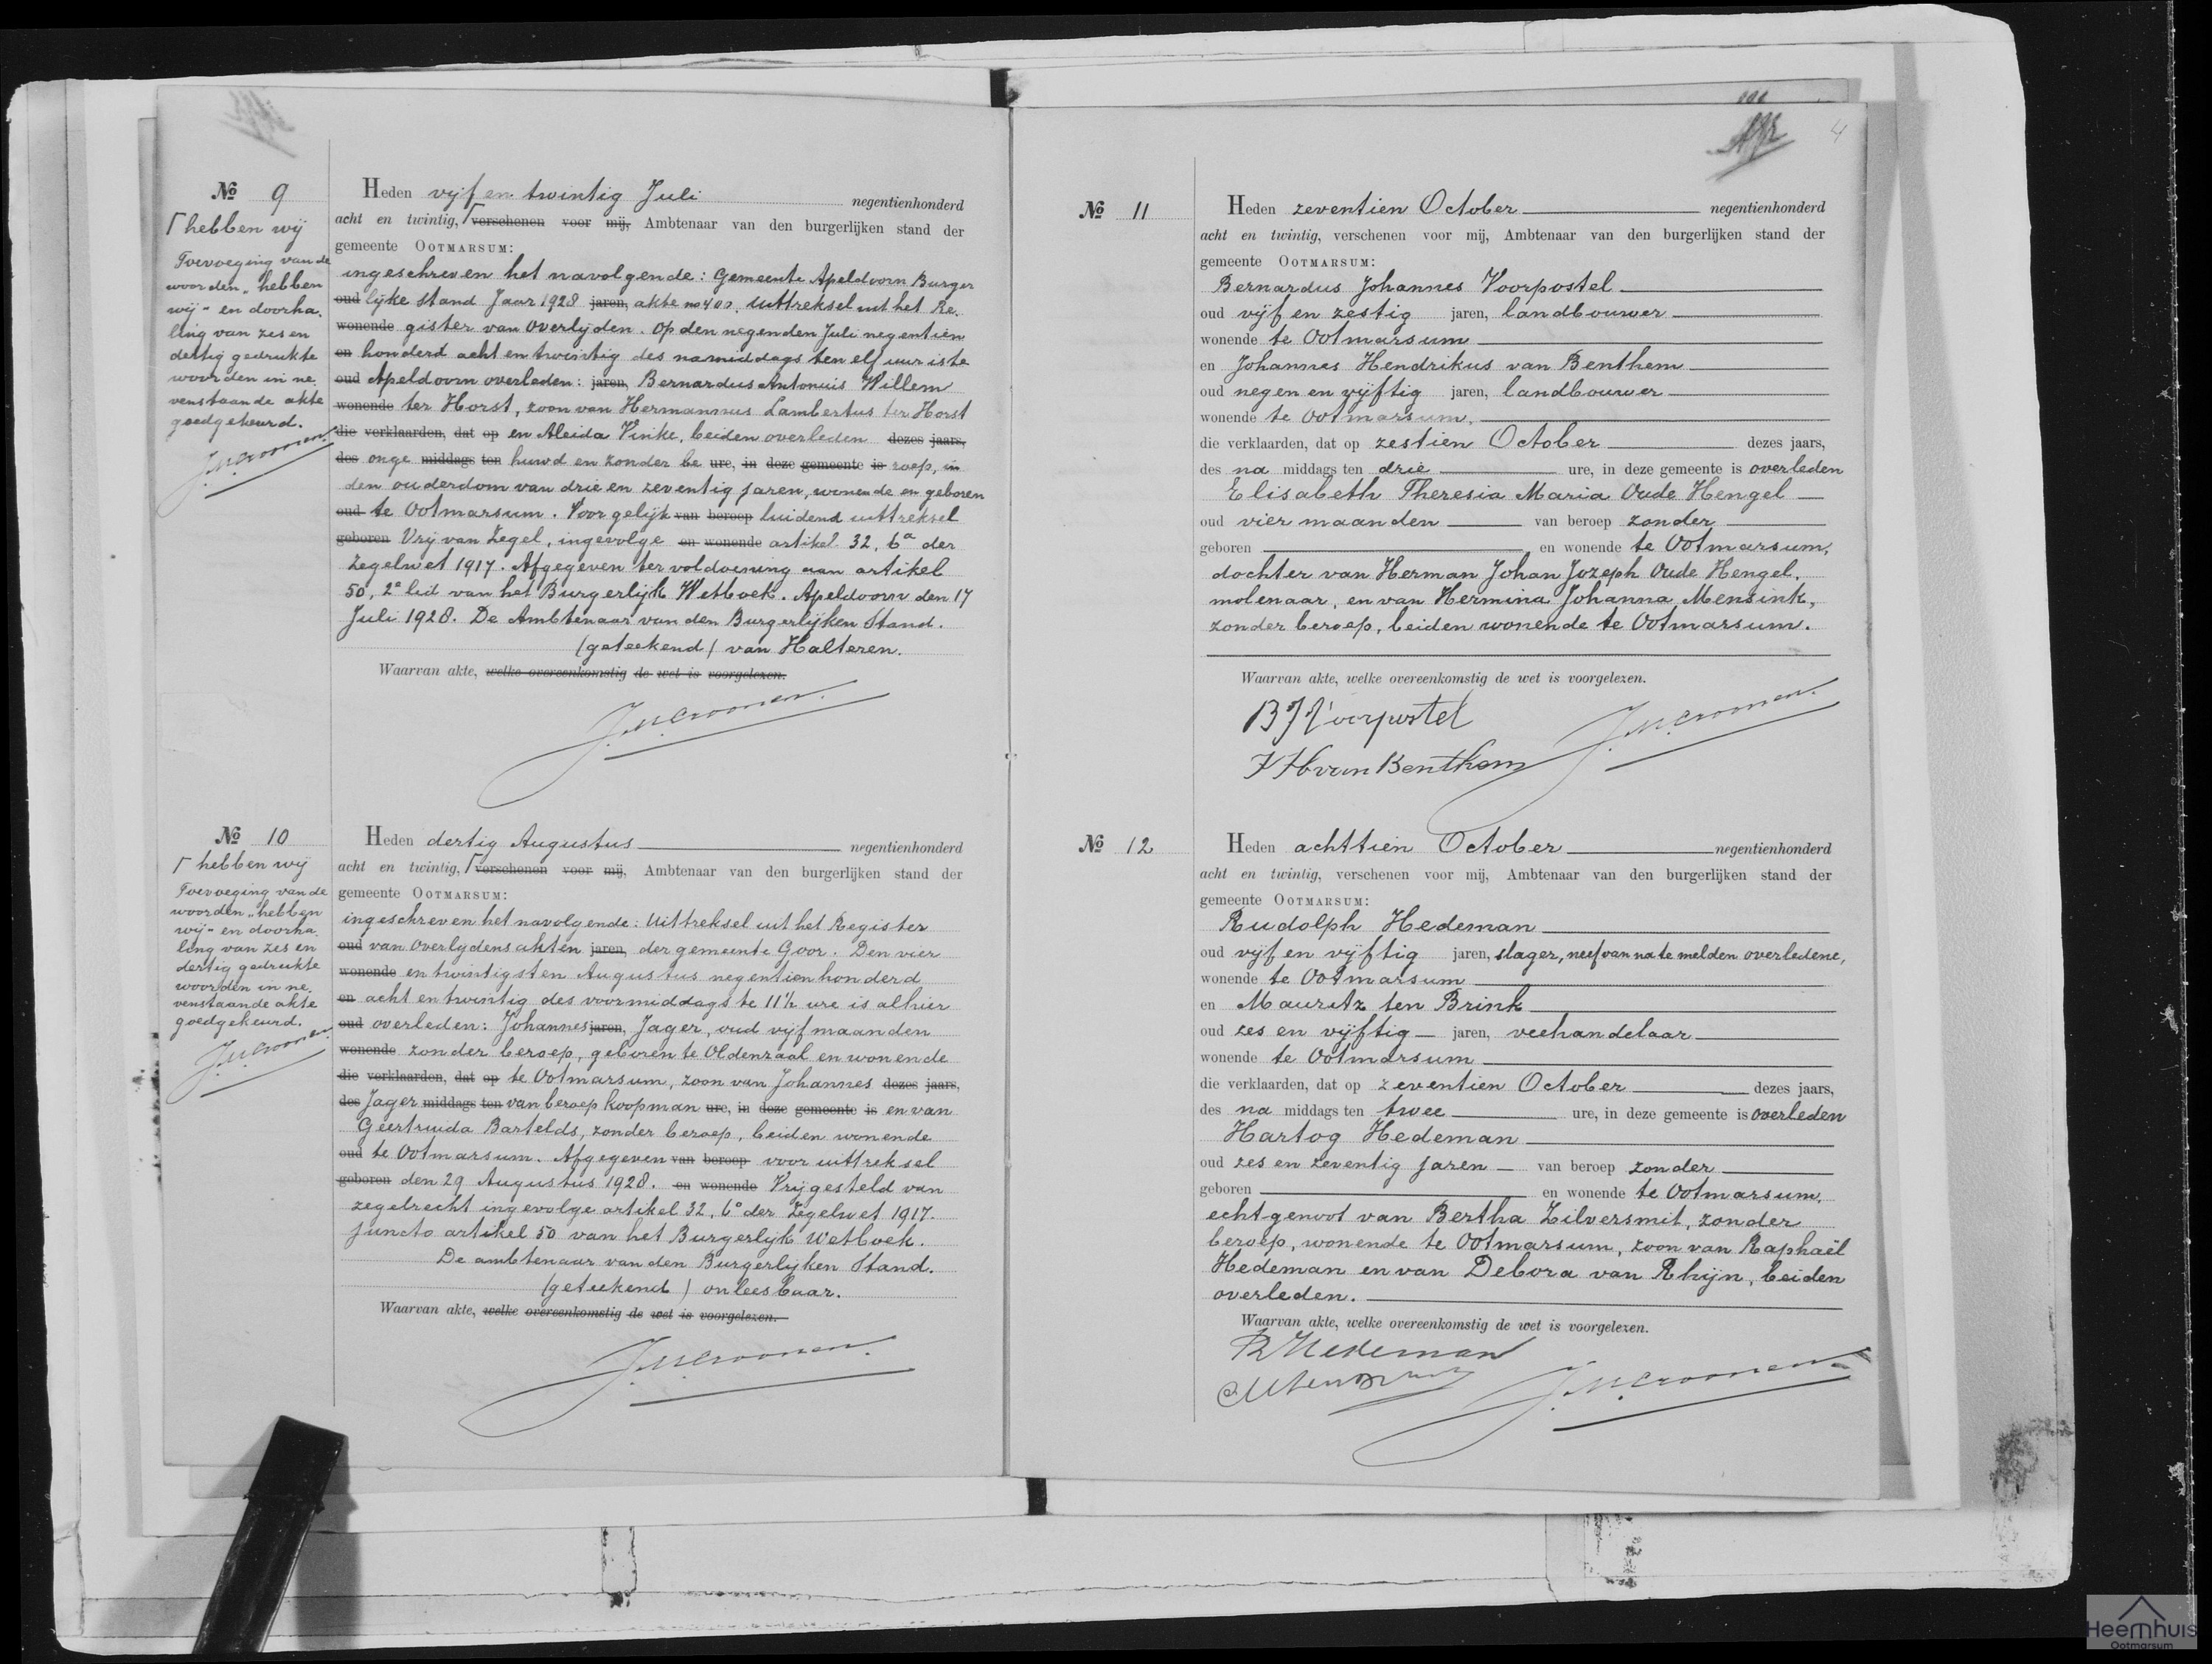 № 9
Heden vijf en twintig Juli negentienhonderd
acht en twintig, ┌ verschenen voor mij, Ambtenaar van den burgerlijken stand der
gemeente OOTMARSUM:
ingeschreven het navolgende: Gemeente Apeldoorn Burger
oud lijke stand Jaar 1928 jaren, akte no 400. Uittreksel uit het Re.
wonende gister van Overlijden. Op den negenden Juli negentien
en honderd acht en twintig des namiddags ten elf uur is te
oud Apeldoorn overleden: jaren, Bernardus Antonius Willem
wonende ter Horst, zoon van Hermannus Lambertus ter Horst
die verklaarden, dat op en Aleida Vinke, beiden overleden dezes jaars,
des onge middags ten huwd en zonder be ure, in deze gemeente is roep, in
den ouderdom van drie en zeventig jaren, wonende en geboren
oud te Ootmarsum. Voor gelijk van beroep luidend uittreksel
geboren Vrij van Zegel, ingevolge en wonende artikel 32, 6a der
Zegelwet 1917. Afgegeven ter voldoening aan artikel
50, 2e lid van het Burgerlijk Wetboek. Apeldoorn den 17
Juli 1928. De Ambtenaar van den Burgerlijken Stand.
(geteekend) van Halteren.
Waarvan akte, welke overeenkomstig de wet is voorgelezen.
┌ hebben wij
Toevoeging van de
woorden „hebben
wij" en doorha.
ling van zes en
dertig gedrukte
woorden in ne.
venstaande akte
goedgekeurd.
№ 10
Heden dertig Augustus negentienhonderd
acht en twintig, ┌ verschenen voor mij, Ambtenaar van den burgerlijken stand der
gemeente OOTMARSUM:
ingeschreven het navolgende: Uittreksel uit het Register
oud van Overlydensakten jaren, der gemeente Goor. Den vier
wonende en twintigsten Augustus negentienhonderd
en acht en twintig des voormiddags te 11½ ure is alhier
oud overleden: Johannes jaren, Jager, oud vijf maanden
wonende zonder beroep, geboren te Oldenzaal en wonende
die verklaarden, dat op te Ootmarsum, zoon van Johannes dezes jaars,
des Jager middags ten van beroep koopman ure, in deze gemeente is en van
Geertruida Bartelds, zonder beroep, beiden wonende
oud te Ootmarsum. Afgegeven van beroep voor uittreksel
geboren den 29 Augustus 1928. en wonende Vrijgesteld van
zegelrecht ingevolge artikel 32, 6° der Zegelwet 1917.
juncto artikel 50 van het Burgerlijk Wetboek.
De ambtenaar van den Burgerlijken Stand.
(geteekend) onleesbaar.
Waarvan akte, welke overeenkomstig de wet is voorgelezen.
┌ hebben wij
Toevoeging van de
woorden „hebben
wij" en doorha.
ling van zes en
dertig gedrukte
woorden in ne.
venstaande akte
goedgekeurd.
4
№ 11
Heden zeventien October negentienhonderd
acht en twintig, verschenen voor mij, Ambtenaar van den burgerlijken stand der
gemeente OOTMARSUM:
Bernardus Johannes Voorpostel
oud vijf en zestig jaren, landbouwer
wonende te Ootmarsum
en Johannes Hendrikus van Benthem
oud negen en vijftig jaren, landbouwer
wonende te Ootmarsum,
die verklaarden, dat op zestien October dezes jaars,
des na middags ten drie ure, in deze gemeente is overleden
Elisabeth Theresia Maria Oude Hengel
oud vier maanden van beroep zonder
geboren en wonende te Ootmarsum,
dochter van Herman Johan Jozeph Oude Hengel,
molenaar, en van Hermina Johanna Mensink,
zonder beroep, beiden wonende te Ootmarsum.
Waarvan akte, welke overeenkomstig de wet is voorgelezen.
B J Voorpostel
J H van Benthem
№ 12
Heden achttien October negentienhonderd
acht en twintig, verschenen voor mij, Ambtenaar van den burgerlijken stand der
gemeente OOTMARSUM:
Rudolph Hedeman
oud vijf en vijftig jaren, slager, neef van na te melden overledene,
wonende te Ootmarsum
en Mauritz ten Brink
oud zes en vijftig jaren, veehandelaar
wonende te Ootmarsum
die verklaarden, dat op zeventien October dezes jaars,
des na middags ten twee ure, in deze gemeente is overleden
Hartog Hedeman
oud zes en zeventig jaren van beroep zonder
geboren en wonende te Ootmarsum,
echtgenoot van Bertha Zilversmit, zonder
beroep, wonende te Ootmarsum, zoon van Raphaël
Hedeman en van Debora van Rhijn, beiden
overleden.
Waarvan akte, welke overeenkomstig de wet is voorgelezen.
R Hedeman
Heemhuis
Ootmarsum